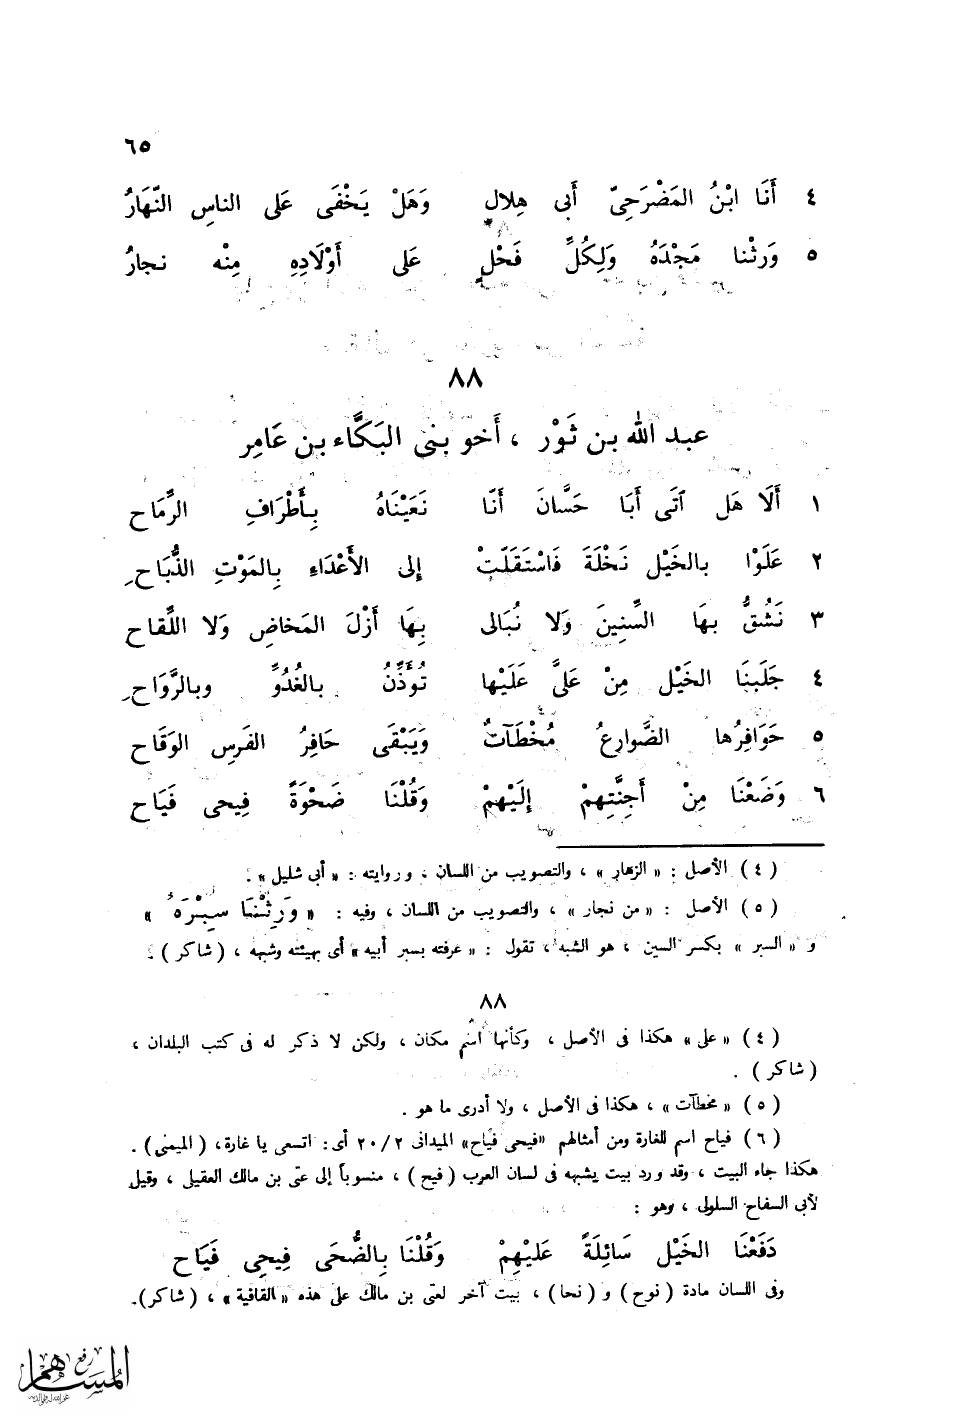 ٦٥
٤ أَنَا ابْنُ المَضْرَحِىّ أَبى هِلالٍ وَهَلْ يَخْفَى عَلى الناسِ النَّهَارُ
٥ وَرِثْنا مَجْدَهُ وَلِكُلِّ فَحْلٍ عَلى أَوْلَادِهِ مِنْه نجارُ
٨٨
عبد الله بن ثَوْر ، أَخو بنى البَكَّاء بن عَامِر
١ أَلَا هَل آتَى أَبَا حَسَّانَ أَنّا نَعَيْنَاهُ بِأَطْرَافِ الرِّمَاحِ
٢ عَلَوْا بالخَيْل نَخْلَةَ فَاسْتَقَلَّتْ إلى الأَعْدَاءِ بِالمَوْتِ الذُّبَاحِ
٣ نَشُقُّ بهَا السِّنِينَ وَلا نُبَالى بِهَا أَزْلَ المَخاضِ وَلا اللِّقاحِ
٤ جَلَبنَا الخَيْل مِنْ عَلىَّ عَلَيْها تُوَذَّنُ بالغُدُوِّ وبالرَّوَاحِ
٥ حَوَافِرُها الضَّوارِعُ مُخْطَآتٌ وَيَبْقَى حَافِرُ الفَرَسِ الوَقَاحِ
٦ وَضَعْنَا مِنْ أَجِنَّتِهِمْ إلَيْهِمْ وَقُلْنَا ضَحْوَةً فِيحى فَيَاحِ
( ٤ ) الأصل : « الزهار » ، والتصويب من اللسان ، وروايته : « أبى شليل » .
( ٥ ) الأصل : « من نجار » ، والتصويب من اللسان ، وفيه : « وَرِثْنَا سِبْرَهُ »
و « السبر » بكسر السين ، هو الشبه ، تقول : « عرفته بسبر أبيه » أى بهيئته وشبهه ، ( شاكر ) .
٨٨
( ٤ ) « على » هكذا فى الأصل ، وكأنها اسم مكان ، ولكن لا ذكر له فى كتب البلدان ،
( شاكر ) .
( ٥ ) « مخطآت » ، هكذا فى الأصل ، ولا أدرى ما هو .
( ٦ ) فياح اسم للغارة ومن أمثالهم «فيحى فَيَاح» الميدانى ٢٠/٢ أى : اتسعى يا غارة، ( الميمنى ) .
هكذا جاء البيت ، وقد ورد بيت يشبهه فى لسان العرب ( فيح ) ، منسوباً إلى عتى بن مالك العقيلى ، وقيل
لأبى السفاح السلولى ، وهو :
دَفَعْنَا الخَيْل سَائِلَةً عَلَيْهِمْ وَقُلْنَا بِالضُّحَى فِيحِى فَيَاحِ
وفى اللسان مادة ( نوح ) و ( نحا ) ، بيت آخر لعتى بن مالك على هذه « القافية » ، ( شاكر ) .
رفع
المساهم